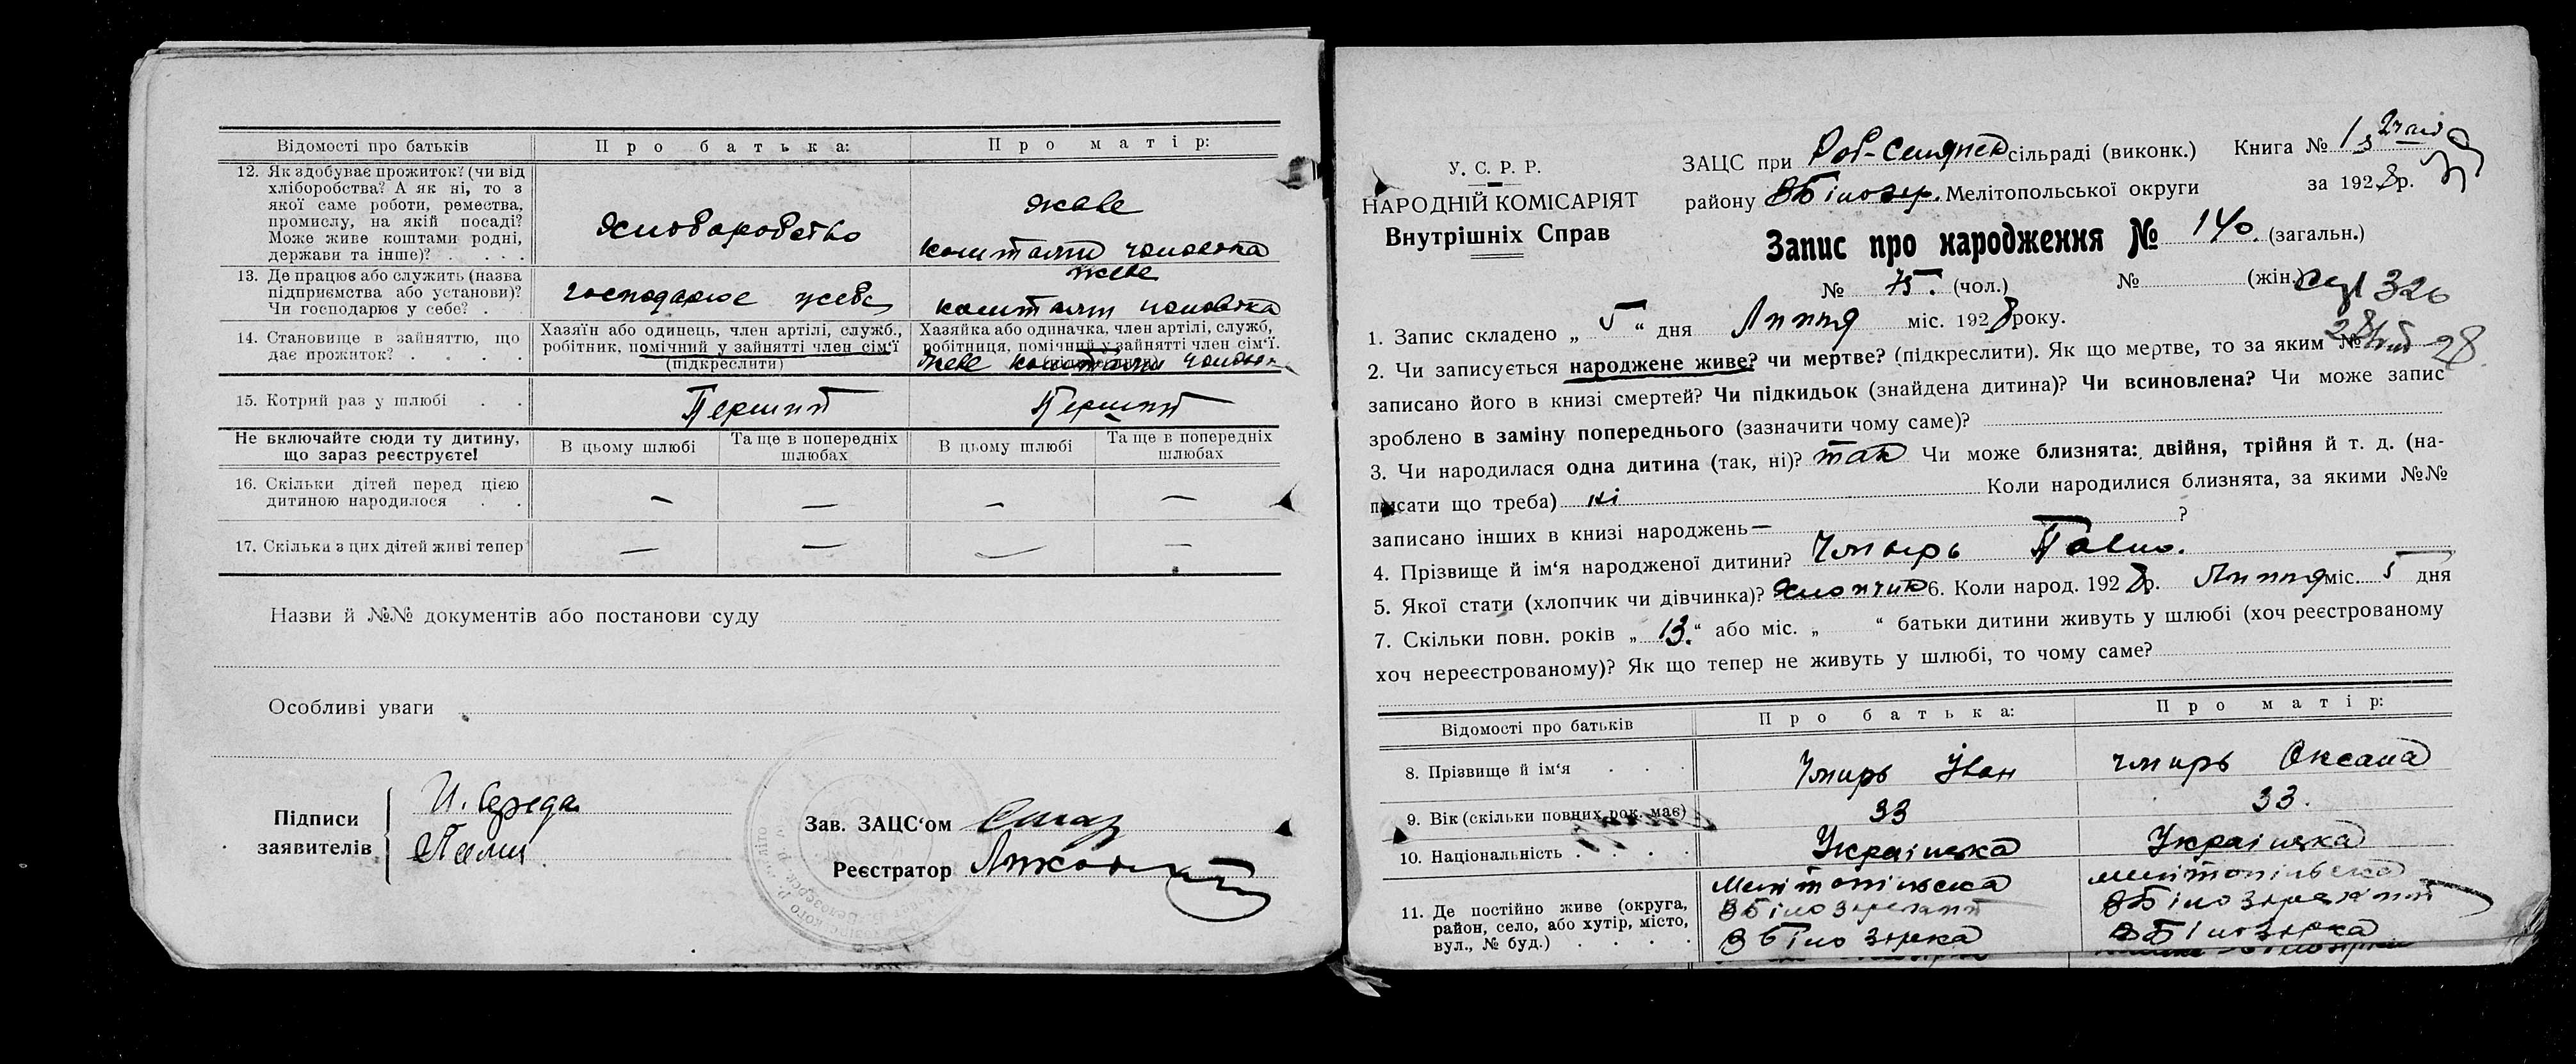 Відомості про батьків
Про батька:
Про матір:
12. Як здобуває прожиток? (чи від
хліборобства? А як ні, то з
якої саме роботи, ремества,
промислу, на якій посаді?
Може живе коштами родні,
держави та інше)? . . . .
Хліборобство
живе
коштами чоловіка
13. Де працює або служить (назва
підприємства або установи)?
Чи господарює у себе? .
господарює
живе
коштами чоловіка
14. Становище в зайняттю, що
дає прожиток? . . . .
Хазяїн або одинець, член артілі, служб.,
робітник, помічний у зайнятті член сім'ї
(підкреслити)
Хазяйка або одиначка, член артілі, служб,
робітниця, помічний у зайнятті член сім'ї.
живе коштами
15. Котрий раз у шлюбі . .
Перший
Перший
Не включайте сюди ту дитину,
що зараз реєструєте!
В цьому шлюбі
Та ще в попередніх
шлюбах
В цьому шлюбі
Та ще в попередніх
шлюбах
16. Скільки дітей перед цією
дитиною народилося . .
— — — —
17. Скільки з цих дітей живі тепер
— — — —
Назви й №№ документів або постанови суду
Особливі уваги
Підписи
заявителів
И. Середа
Зав. ЗАЦС'ом
Реєстратор
У. С. Р. Р.
НАРОДНІЙ КОМІСАРІЯТ
Внутрішніх Справ
ЗАЦС при Роб-Селянск сільраді (виконк.) Книга № 13
району ВБілозер. Мелітопольської округи за 1928р.
Запис про народження № 140. (загальн.)
№ 75. (чол.) № (жін.)
326
28
1. Запис складено „ 5 “ дня Липня міс. 1928 року.
2. Чи записується народжене живе? чи мертве? (підкреслити). Як що мертве, то за яким №
записано його в книзі смертей? Чи підкидьок (знайдена дитина)? Чи всиновлена? Чи може запис
зроблено в заміну попереднього (зазначити чому саме)?
3. Чи народилася одна дитина (так, ні)? так Чи може близнята: двійня, трійня й т. д. (на-
писати що треба) ні Коли народилися близнята, за якими №№
записано інших в книзі народжень — ?
4. Прізвище й ім'я народженої дитини? Чмырь Павло.
5. Якої стати (хлопчик чи дівчинка)? Хлопчик 6. Коли народ. 1928р. Липня міс. 5 дня
7. Скільки повн. років „ 13. “ або міс. „ “ батьки дитини живуть у шлюбі (хоч реєстрованому
хоч нереєстрованому)? Як що тепер не живуть у шлюбі, то чому саме?
Відомості про батьків
Про батька:
Про матір:
8. Прізвище й ім'я . . .
Чмирь Іван
Чмирь Оксана
9. Вік (скільки повних рок. має)
33
33.
10. Національність . . . .
Українска
Українска
11. Де постійно живе (округа,
район, село, або хутір, місто,
вул., № буд.) . . . .
Мелітопільска
ВБілозерский
ВБілозерка
мелітопільска
ВБілозерский
ВБілозерка